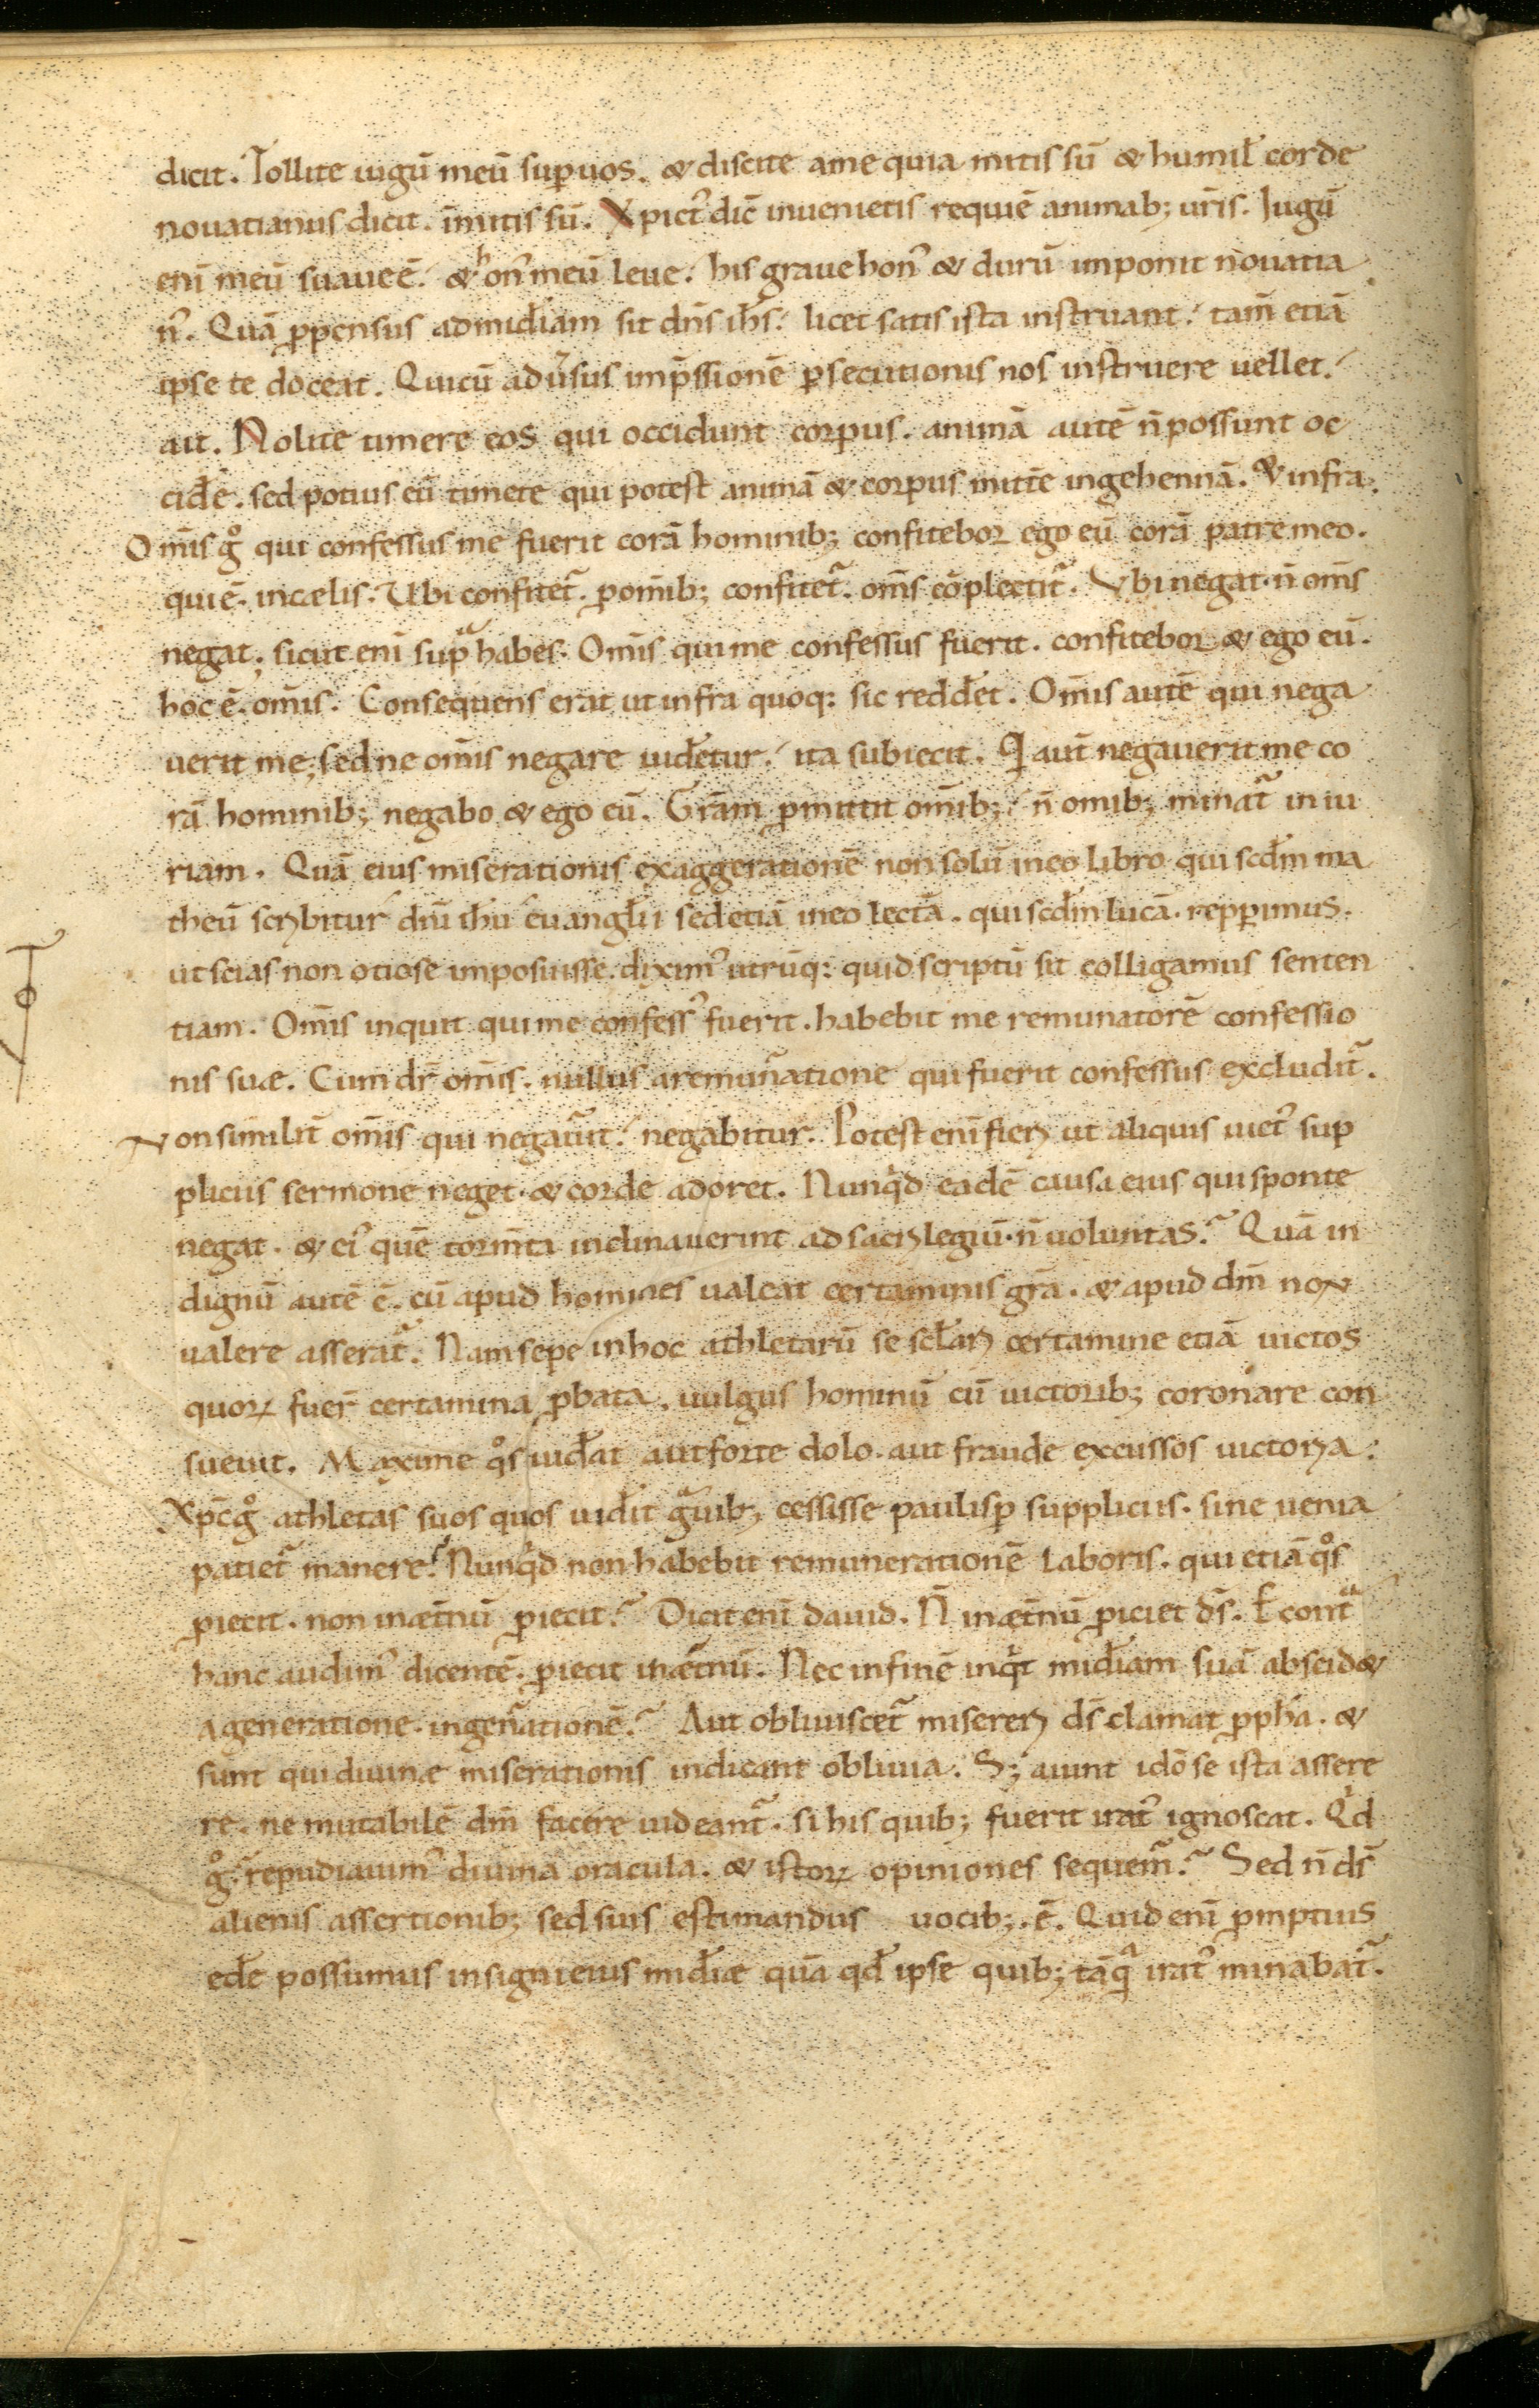 dicit. Tollite iugū meū sup uos. & discite ame quia mitis sū & humil̄ corde
nouatianus dicit. īmitis sū. Xpict᷒ dic̄ inuenietis requiē animab; ur̄is. Iugū
enī meū suaue ē. & hon᷒ meū leue. his graue hon᷒ & durū imponit nouatia
n᷒. Quā ꝓpensus ad mīdiam sit dn̄s ih̄s. licet satis ista instruant. tam̄ etiā
ipse te doceat. Qui cū aduˢsus imp̄ssionē ꝑsecutionis nos instruere uellet.
ait. Nolite timere eos qui occidunt corpus. animā autē n̄ possunt oc
cid̄e. sed potius eū timete qui potest animā & corpus mitt̄e ingehennā. & infra.
Om̄is g̊ qui confessus me fuerit corā hominib; confitebor ego eū corā patre meo.
qui ē. incælis. Ubi confitet᷑. ꝓ om̄ib; confitet᷑. om̄s cōplectit᷑. Vbi negat. n̄ om̄s
negat. sicut enī supᷓ habes. Om̄is qui me confessus fuerit. confitebor & ego eū.
hoc ē. om̄is. Consequens erat ut infra quoq: sic redd̄et. Om̄is autē qui nega
uerit me; sed ne om̄is negare uid̄etur. ita subiecit. Q̇ aut̄ negauerit me co
rā hominib; negabo & ego eū. Grām ꝓmittit om̄ib; n̄ omib; minat᷑ iniu
riam. Quā eius miserationis exaggerationē non solū ineo libro qui scd̄m ma
theū scribitur dn̄i ih̄u euangl̄ii sed etiā ineo lectā. qui scd̄m lucā. repꝑimus.
ut scias non otiose imposuisse. dixim᷒ utrūq: quid scriptū sit colligamus senten
tiam. Om̄is inquit qui me confess᷒ fuerit. habebit me remunatorē confessio
nis suæ. Cum dr̄ om̄is. nullus aremunᷓatione qui fuerit confessus excludit᷑.
Non similit̄ om̄is qui negauit. negabitur. Potest enī fieri ut aliquis uict᷒ sup
pliciis sermone neget. & corde adoret. Nunq̇d eadē causa eius qui sponte
negat. & ei᷒ quē torm̄ta inclinauerint ad sacrilegiū. n̄ uoluntas? Quā in
dignū autē ē. cū apud homines ualeat certaminis grā. & apud dm̄ non
ualere asserat᷑. Nam sepe inhoc athletarū se scl̄ari certamine etiā uictos
quoꝝ fuer̄ certamina ꝓbata. uulgus hominū cū uictorib; coronare con
sueuit. Maxime q̊s uid̄at aut forte dolo. aut fraude excussos uictoria.
Xp̄c g̊ athletas suos quos uid̄it gᷓuib; cessisse paulisꝑ suppliciis. sine uenia
patiet᷑ manere? Nunq̇d non habebit remunerationē laboris. qui etiā q̊s
ꝓiecit. non inæt̄nū ꝓiecit? Dicit enī dauid. N̄ inæt̄nū ꝓiciet ds̄. E contᷓ
hanc audim᷒ dicentē. ꝓiecit inæt̄nū. Nec infinē inq̇t mīdiam suā abscid&
ageneratione. ingenᷓationē? Aut obliuiscet᷑ misereri ds̄ clamat ꝓph̄a. &
sunt qui diuinæ miserationis indicant obliuia. S; aiunt id̄o se ista assere
re. ne mutabilē dm̄ facere uideant᷑. si his quib; fuerit irat᷒ ignoscat. Q̇d
g̊? repudiauim᷒ diuina oracula. & istoꝝ opiniones sequem᷑? Sed n̄ ds̄
alienis assertionib; sed suis estimandus uocib;. ē. Quid enī ꝓmptius
ed̄e possumus insigni eius mīdiæ quā qd̄ ipse quib; tāqᷓ irat᷒ minabat᷑.